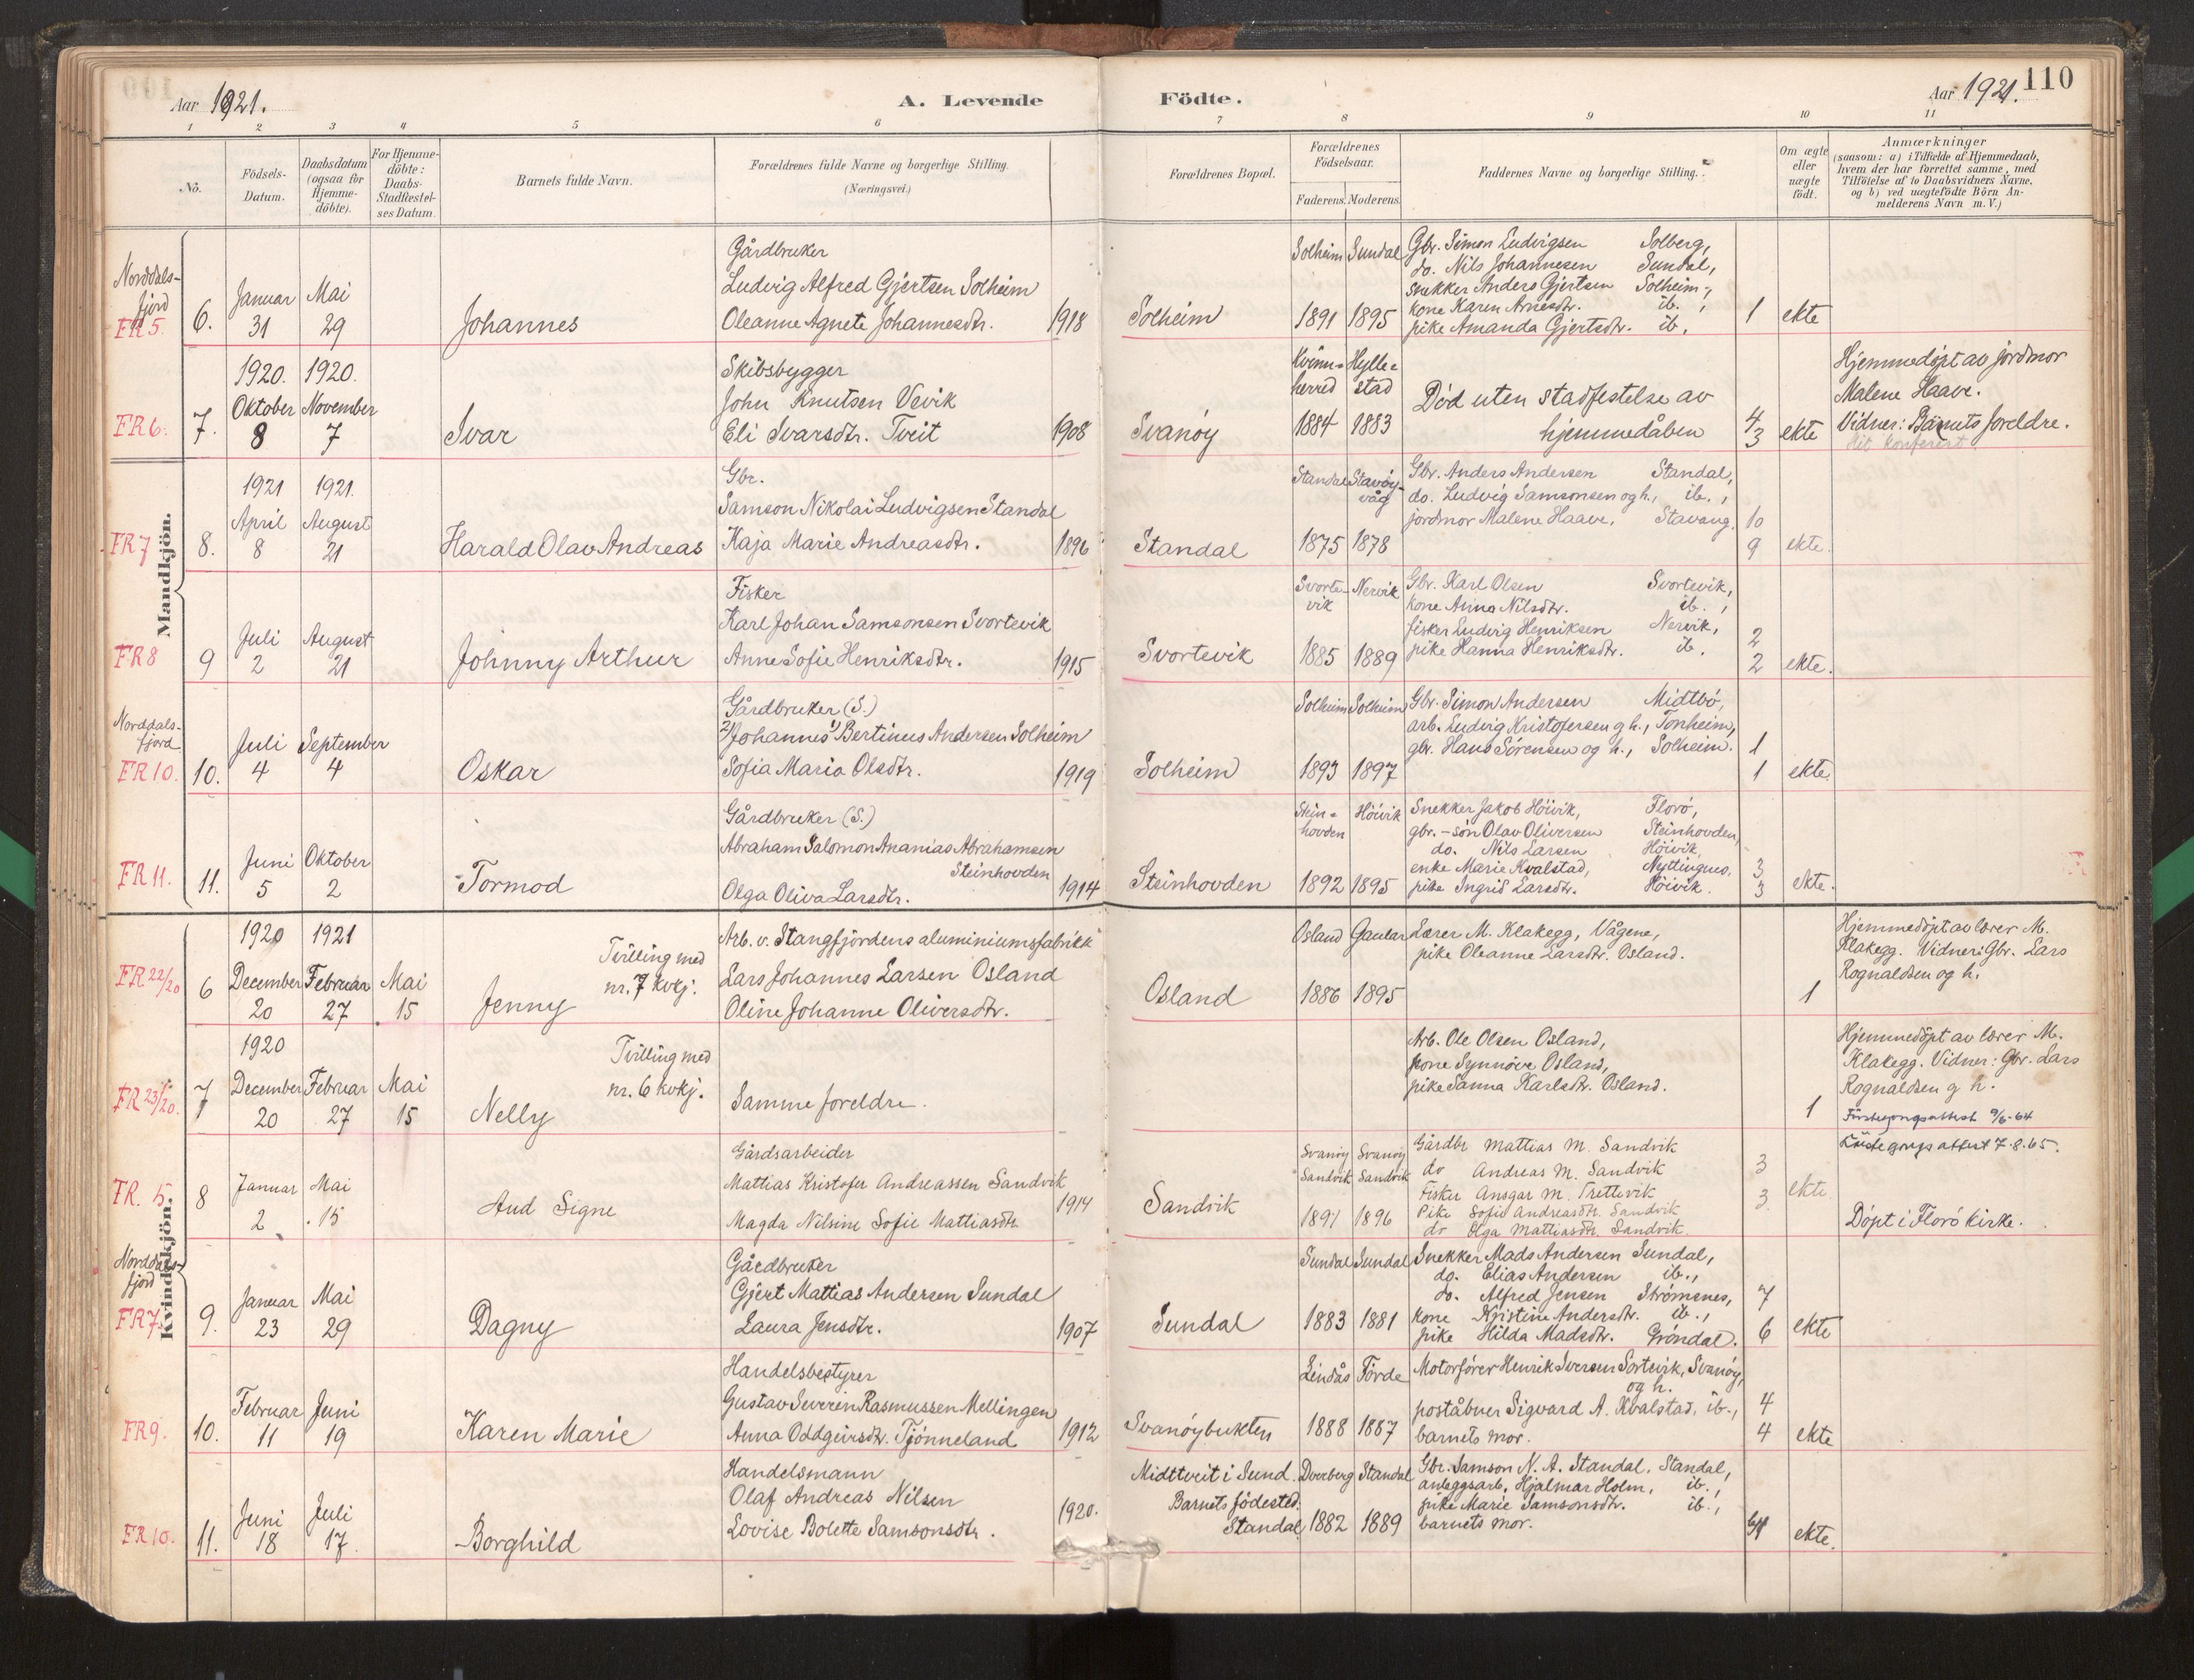 Aar 1921.
A. Levende
Födte.
Aar 1921.
110
1 2 3 4 5 6 7 8 9 10 11
No.
Födsels-
Datum.
Daabsdatum
(ogsaa for
Hjemme-
döbte).
For Hjemme-
döbte:
Daabs-
Stadfæstel-
ses Datum.
Barnets fulde Navn.
Forældrenes fulde Navne og borgerlige Stilling.
(Næringsvei.)
Forældrenes Bopæl.
Forældrenes
Födselsaar.
Faderens. Moderens.
Faddernes Navne og borgerlige Stilling.
Om ægte
eller
uægte
födt.
Anmærkninger
(saasom: a) i Tilfælde af Hjemmedaab,
hvem der har forrettet samme, med
Tilföielse af to Daabsvidners Navne,
og b) ved uægtefödte Börn An-
melderens Navn m. V.)
Mandkjön.
Norddals-
fjord
FR 5. 6.
Januar 31
Mai 29
Johannes
Gårdbruker
Ludvig Alfred Gjertsen Solheim
Oleanne Agnete Johannesdtr. 1918
Solheim
Solheim Sundal
1891 1895
Gbr. Simon Ludvigsen Solberg,
do. Nils Johannesen Sundal,
snekker Anders Gjertsen Solheim,
kone Karen Arnesdtr. ib.,
pike Amanda Gjertsdtr. ib.
1 ekte
FR 6. 7.
1920. 1920.
Oktober 8
November 7
Ivar
Skibsbygger
John Knutsen Vevik
Eli Ivarsdtr. Tveit 1908
Svanøy
Kvinn-
herred
Hylle-
stad
1884 1883
Død uten stadfestelse av
hjemmedåben
4
3 ekte
Hjemmedøpt av jordmor
Malene Haave.
Vidner: Barnets foreldre.
FR 7 8.
1921 1921.
April 8
August 21
Harald Olav Andreas
Gbr.
Samson Nikolai Ludvigsen Standal
Kaja Marie Andreasdtr. 1896
Standal
Standal Stavøy-
våg
1875 1878
Gbr. Anders Andersen Standal,
do. Ludvig Samsonsen og h., ib.,
jordmor Malene Haave, Stavang.
10
9 ekte.
FR 8 9
Juli 2
August 21
Johnny Arthur
Fisker
Karl Johan Samsonsen Svortevik
Anne Sofie Henriksdtr. 1915
Svortevik
Svorte-
vik
Nesvik
1885 1889
Gbr. Karl Olsen Svortevik,
kone Anna Nilsdtr. ib.,
fisker Ludvig Henriksen Nesvik,
pike Hanna Henriksdtr. ib.
2
2 ekte.
Norddals-
fjord
FR 10. 10.
Juli 4
September 4
Oskar
Gårdbruker (S.)
2) Johannes 1) Bertinus Andersen Solheim
Sofia Maria Olsdtr. 1919
Solheim
Solheim Solheim
1893 1897
Gbr. Simon Andersen Midtbö,
arb. Ludvig Kristofersen og h., Tonheim,
gbr. Hans Sörensen og h., Solheim.
1
1 ekte.
FR 11. 11.
Juni 5
Oktober 2
Tormod
Gårdbruker (S.)
Abraham Salomon Ananias Abrahamsen
Steinhovden
Olga Oliva Larsdtr. 1914
Steinhovden
Stein-
hovden
Höivik
1892 1895
Snekker Jakob Höivik, Florö,
gbr.-sön Olav Oliversen Steinhovden,
do. Nils Larsen Höivik,
enke Marie Kvalstad, Nyttingnes,
pike Ingrid Larsdtr. Höivik.
3
3 ekte.
Kvindekjön.
FR 22/20 6
1920 1921
December 20
Februar 27
Mai 15
Jenny
Tvilling med
nr. 7 kvkj.
Arb. v. Stangfjordens aluminiumsfabrikk
Lars Johannes Larsen Osland
Oline Johanne Oliversdtr.
Osland
Osland Gaular
1886 1895
Lærer M. Klakegg, Vågene,
pike Oleanne Larsdtr. Osland.
1
Hjemmedöpt av lærer M.
Klakegg. Vidner: Gbr. Lars
Rognaldsen og h.
FR 23/20. 7
1920
December 20
Februar 27
Mai 15
Nelly
Tvilling med
nr. 6 kvkj.
Samme foreldre.
Arb. Ole Olsen Osland,
kone Synnöve Osland,
pike Sanna Karlsdtr. Osland.
1
Hjemmedöpt av lærer M.
Klakegg. Vidner: Gbr. Lars
Rognaldsen og h.
Förstegangsattest 9/6-64
FR. 5. 8
Januar 2
Mai 15
Aud Signe
Gårdsarbeider
Mattias Kristofer Andreassen Sandvik
Magda Nilsine Sofie Mattiasdtr. 1914
Sandvik
Svanøy
Sandvik
Svanøy
Sandvik
1891 1896
Gårdbr Mattias M. Sandvik
do Andreas M. Sandvik
Fisker Ansgar M. Trettevik
Pike Sofie Andreasdtr. Sandvik
do Olga Mattiasdtr. Sandvik.
3
3 ekte.
attest 7.8.65.
Döpt i Florö kirke.
Norddals-
fjord
FR 7. 9.
Januar 23
Mai 29
Dagny
Gårdbruker
Gjert Mattias Andersen Sundal
Laura Jensdtr. 1907
Sundal
Sundal Sundal
1883 1881
Snekker Mads Andersen Sundal,
do. Elias Andersen ib.,
do. Alfred Jensen Strömsnes,
kone Kristine Andersdtr. ib.,
pike Hilda Madsdtr. Gröndal.
7
6 ekte
FR 9. 10.
Februar 11
Juni 19
Karen Marie
Handelsbestyrer
Gustav Severin Rasmussen Mellingen
Anna Oddgeirsdtr. Tjönneland 1912
Svanöybukten
Lindås Förde
1888 1887
Motorförer Henrik Iversen Sortevik, Svanöy,
og h.
poståbner Sigvard A. Kvalstad, ib.,
barnets mor.
4
4 ekte
FR 10. 11.
Juni 18
Juli 17.
Borghild
Handelsmann
Olaf Andreas Nilsen
Lovise Bolette Samsonsdtr. 1920.
Midttveit i Sund.
Barnets födested:
Standal
Dverberg Standal
1882 1889
Gbr. Samson N. A. Standal, Standal,
anleggsarb. Hjalmar Holm, ib.,
pike Marie Samsonsdtr. ib.,
barnets mor.
ekte.